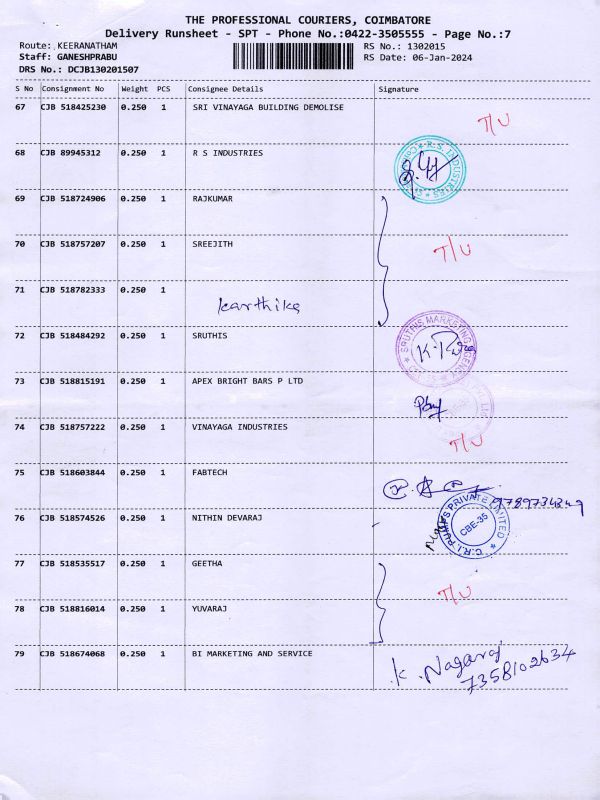 THE PROFESSIONAL COURIERS, COIMBATORE
Delivery Runsheet - SPT - Phone No.:0422-3505555 - Page No.:7
Route: KEERANATHAM
RS No.: 1302015
Staff: GANESHPRABU
RS Date: 06-Jan-2024
DRS No.: DCJB130201507
S No Consignment No Weight PCS Consignee Details Signature
67 CJB 518425230 0.250 1 SRI VINAYAGA BUILDING DEMOLISE T/U
68 CJB 89945312 0.250 1 R S INDUSTRIES
R.S. INDUSTRIES
69 CJB 518724906 0.250 1 RAJKUMAR
70 CJB 518757207 0.250 1 SREEJITH T/U
71 CJB 518782333 0.250 1
karthika
72 CJB 518484292 0.250 1 SRUTHIS
SRUTHIS MARKETING AGENCY
73 CJB 518815191 0.250 1 APEX BRIGHT BARS P LTD
74 CJB 518757222 0.250 1 VINAYAGA INDUSTRIES T/U
75 CJB 518603844 0.250 1 FABTECH
76 CJB 518574526 0.250 1 NITHIN DEVARAJ
C.R.I. PUMPS PRIVATE LIMITED
CBE-35
77 CJB 518535517 0.250 1 GEETHA T/U
78 CJB 518816014 0.250 1 YUVARAJ
79 CJB 518674068 0.250 1 BI MARKETING AND SERVICE K. Nagaraj
7358102634